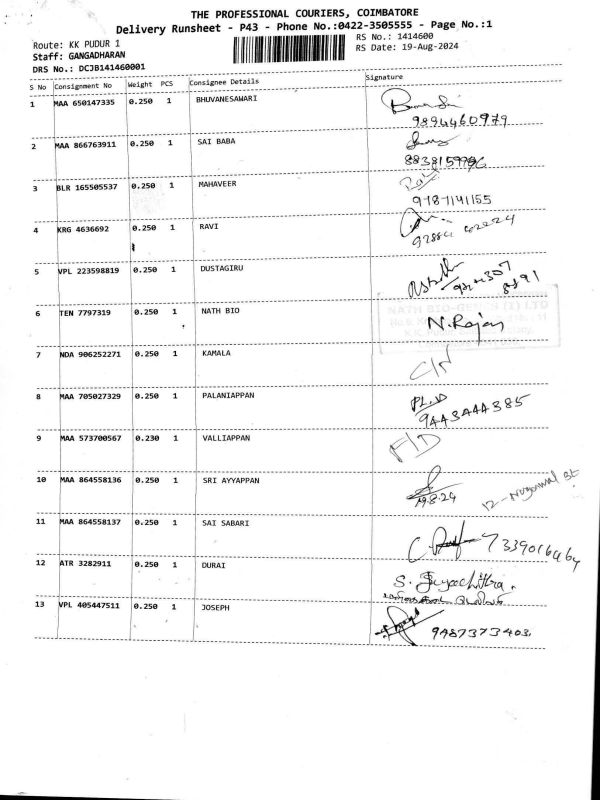 THE PROFESSIONAL COURIERS, COIMBATORE
Delivery Runsheet - P43 - Phone No.:0422-3505555 - Page No.:1
Route: KK PUDUR 1
RS No.: 1414600
Staff: GANGADHARAN
RS Date: 19-Aug-2024
DRS No.: DCJB141460001
S No Consignment No Weight PCS Consignee Details Signature
1 MAA 650147335 0.250 1 BHUVANESAWARI
9894460979
2 MAA 866763911 0.250 1 SAI BABA
3 BLR 165505537 0.250 1 MAHAVEER
9787141155
4 KRG 4636692 0.250 1 RAVI
5 VPL 223598819 0.250 1 DUSTAGIRU
6 TEN 7797319 0.250 1 NATH BIO
N. Rajan
7 NDA 906252271 0.250 1 KAMALA
C/N
8 MAA 705027329 0.250 1 PALANIAPPAN
9443444385
9 MAA 573700567 0.230 1 VALLIAPPAN
F/D
10 MAA 864558136 0.250 1 SRI AYYAPPAN
19.8.24
11 MAA 864558137 0.250 1 SAI SABARI
12 ATR 3282911 0.250 1 DURAI
13 VPL 405447511 0.250 1 JOSEPH
9487373403